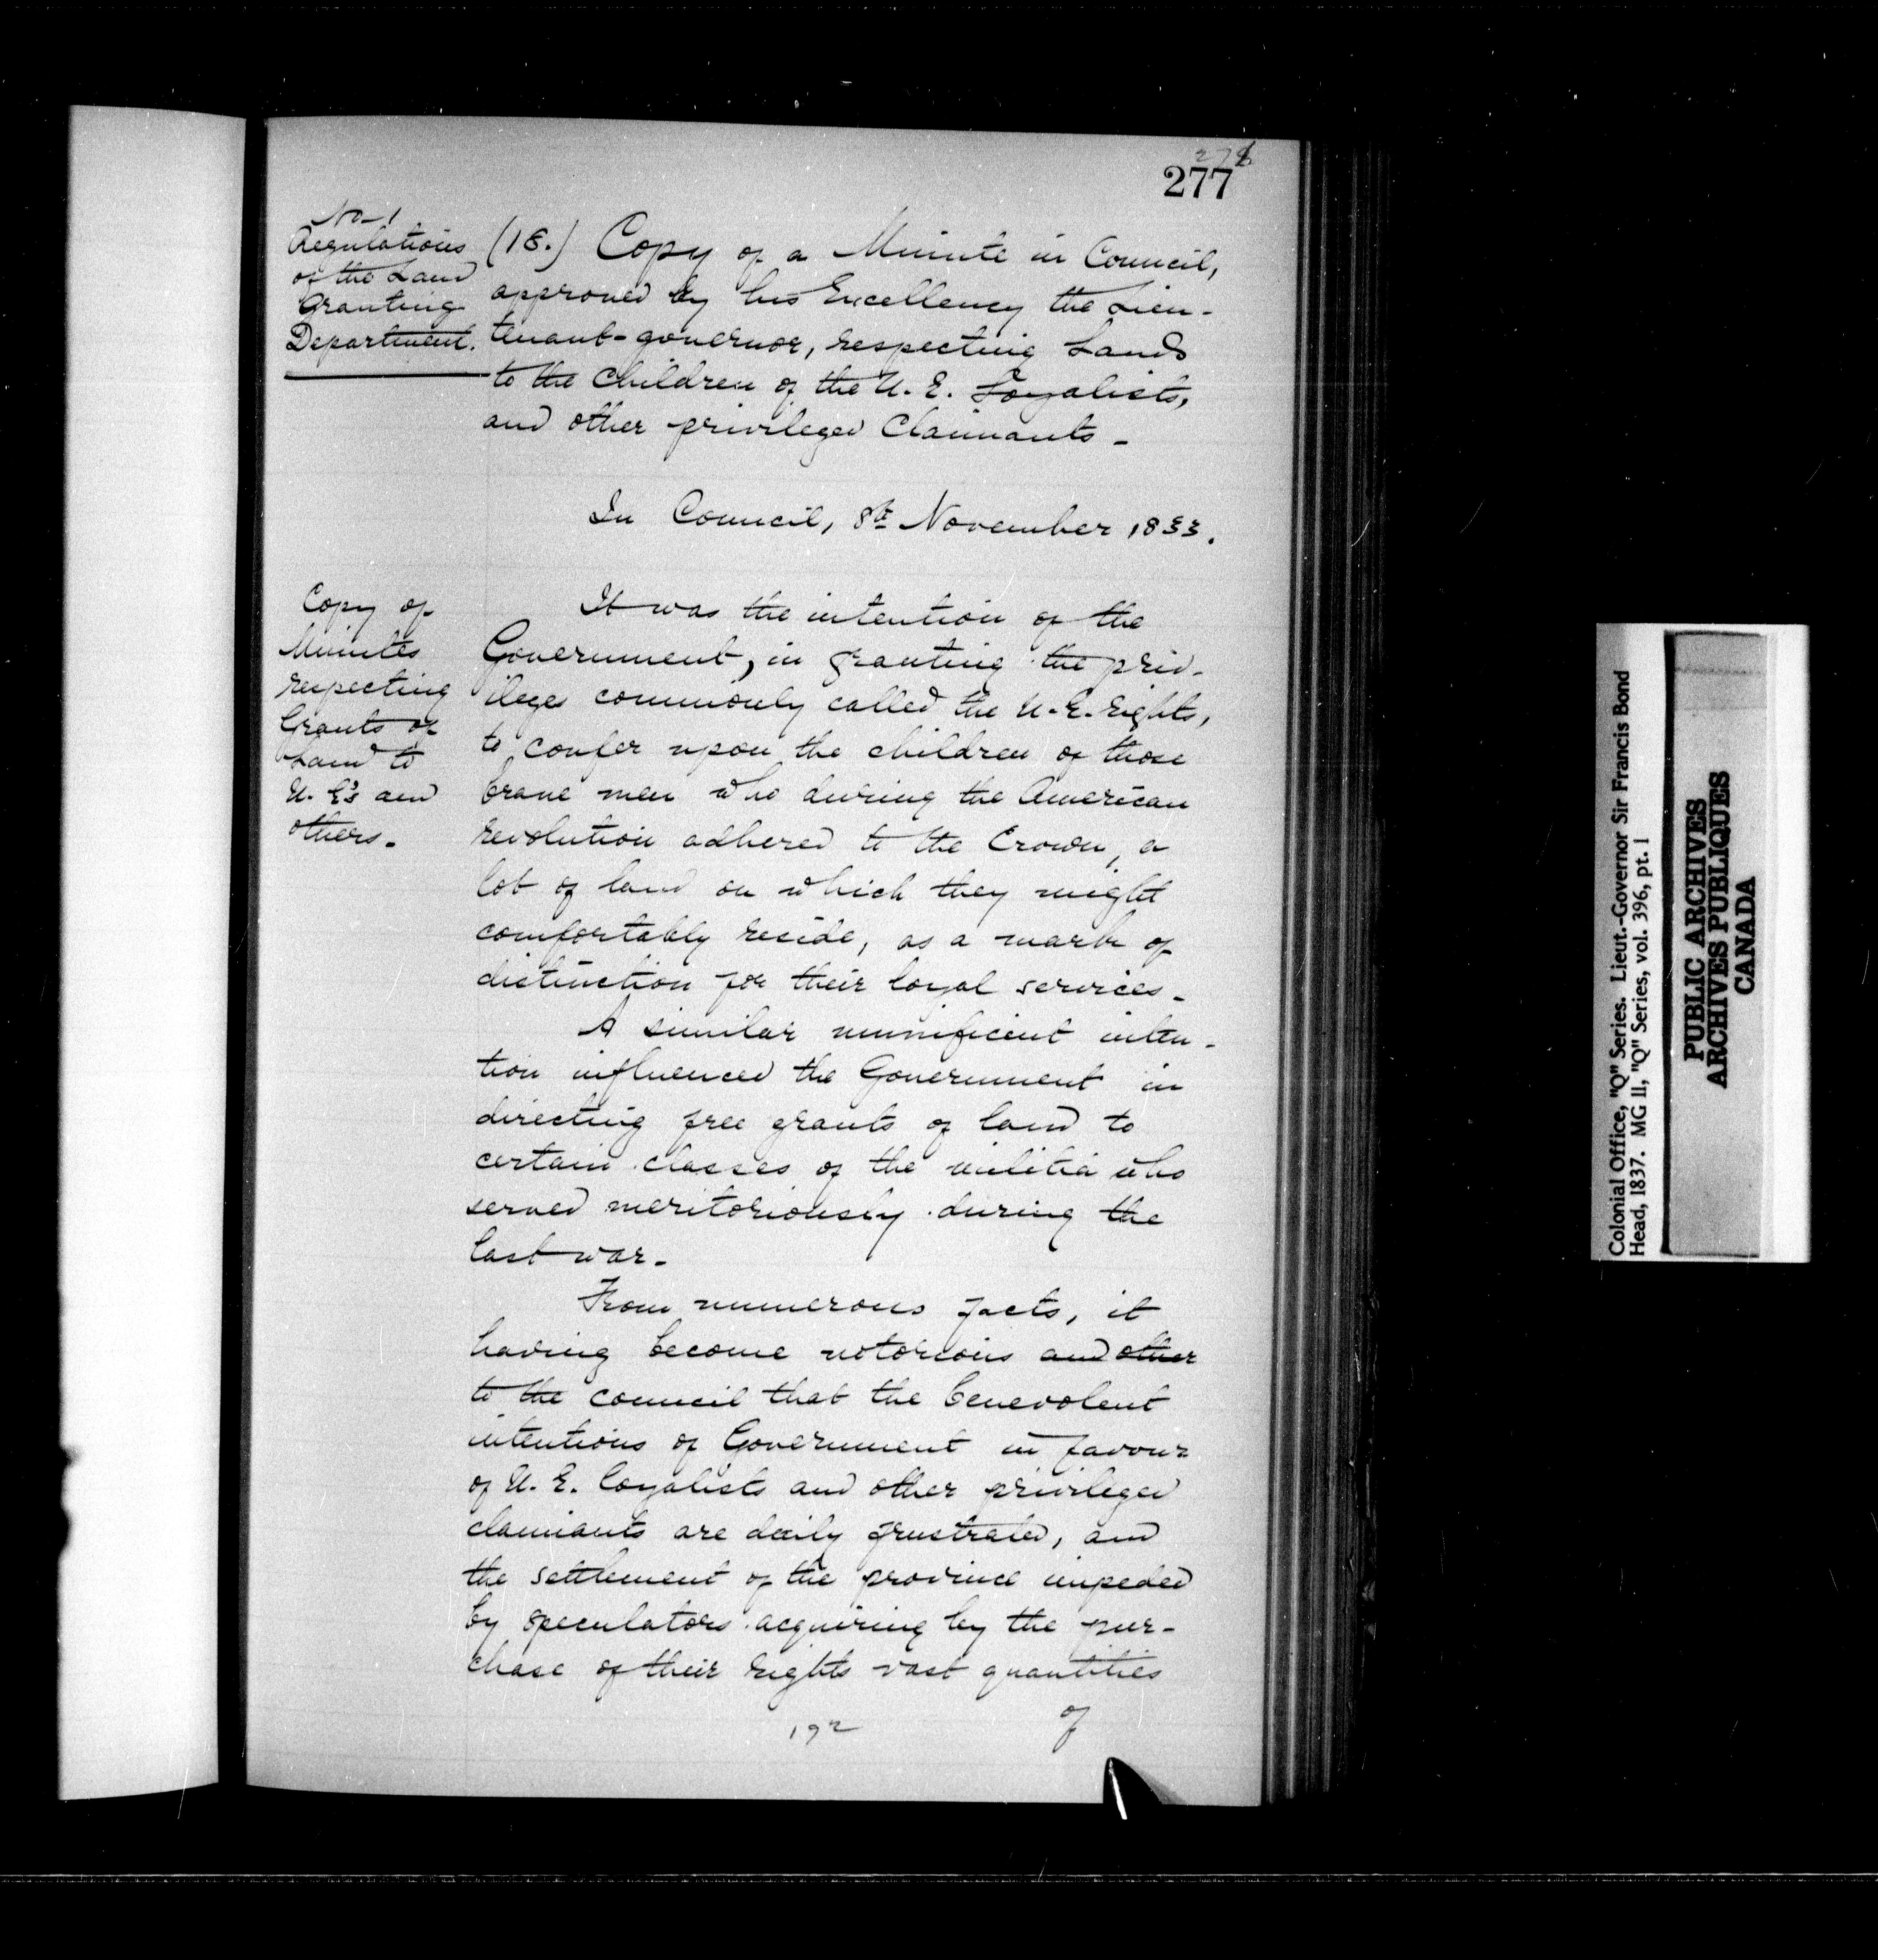 277
No. 1
Regulations
of the Land
Granting
Department.
(18.) Copy of a Minute in Council,
approved by his Excellency the Lieu-
tenant-governor, respecting Lands
to the children of the U. E. Loyalists,
and other privileged Claimants -
In Council, 8th November 1833.
Copy of
Minutes
respecting
Grants of
Land to
U. E's and
others.
It was the intention of the
Government, in granting the priv-
ileges commonly called the U. E. rights,
to confer upon the children of those
brave men who during the American
revolution adhered to the Crown, a
lot of land on which they might
comfortably reside, as a mark of
distinction for their loyal services -
A similar munificent inten-
tion influenced the Government in
directing free grants of land to
certain classes of the militia who
served meritoriously during the
last war -
From numerous facts, it
having become notorious and other
to the council that the benevolent
intentions of Government in favour
of U. E. loyalists and other privileged
claimants are daily frustrated, and
the settlement of the province impeded
by speculators acquiring by the pur-
chase of their rights vast quantities
of
192
Colonial Office, "Q" Series. Lieut.-Governor Sir Francis Bond
Head, 1837. MG 11, "Q" Series, vol. 396, pt. 1
PUBLIC ARCHIVES
ARCHIVES PUBLIQUES
CANADA